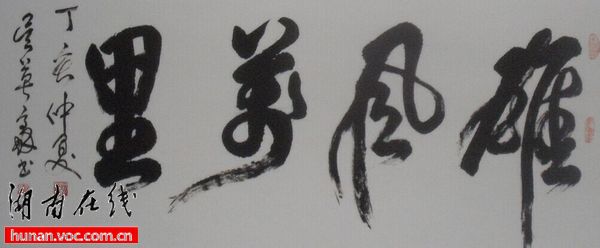 雄風萬里
丁亥仲夏
書
湖南在线
hunan.voc.com.cn